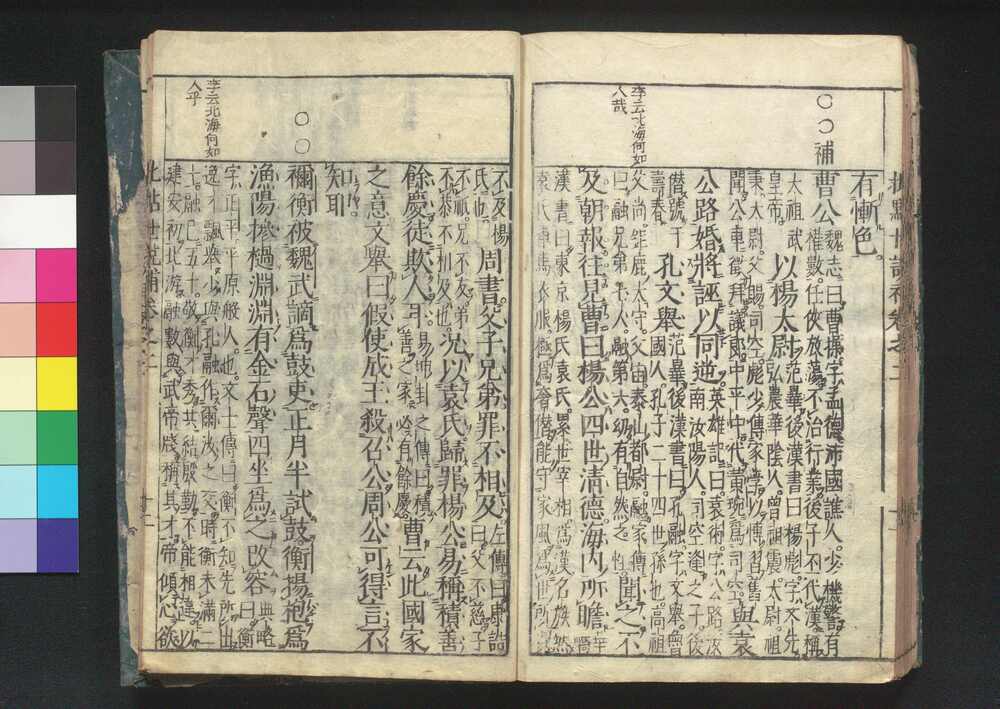 有慚色。
李云北海何如
人哉
○○補
曹公
魏志曰曹操字孟德沛國譙人少機警有
權數任俠放蕩不治行業後子丕代漢稱
太祖武
皇帝
以楊太尉
范曄後漢書曰楊彪字文先
弘農華陰人曾祖震太尉祖
秉太尉父賜司空彪少傳家學以博習舊
聞公車徵拜議郎中平中代黃琬爲司空
與袁
公路婚將誣以同逆
英雄記曰袁術字公路汝
南汝陽人司空逢之子後
僭號于
壽春
孔文舉
范曄後漢書曰孔融字文舉魯
國人孔子二十四世孫也高祖
父尚鉅鹿太守父宙泰山都尉融家傳
曰融兄弟七人融第六幼有自然之性
聞之不
及朝報往見曹曰楊公四世清德海內所瞻
華嶠
漢書曰東京楊氏袁氏累世宰相爲漢名族然
袁氏車馬衣服極爲奢僭能守家風爲世所
李云北海何如
人乎
○○
不及楊
氏也
周書父子兄弟罪不相及
左傳曰康誥
曰父不慈子
不祗兄不友弟
不恭不相及也
况以袁氏歸罪楊公易稱積善
餘慶徒欺人耳
易坤卦之傳曰積
善之家必有餘慶
曹云此國家
之意文舉曰假使成王殺召公周公可得言不
知耶
禰衡彼魏武謫爲鼓吏正月半試鼓衡揚枹爲
漁陽摻檛淵淵有金石聲四坐爲之改容
典略
曰衡
字正平平原般人也文士傳曰衡不知先所出
逸才飄舉少與孔融作爾汝之交時衡未滿二
十融已五十敬衡才秀共結殷勤不能相違以
建安初北游融數與武帝牋稱其才帝傾心欲